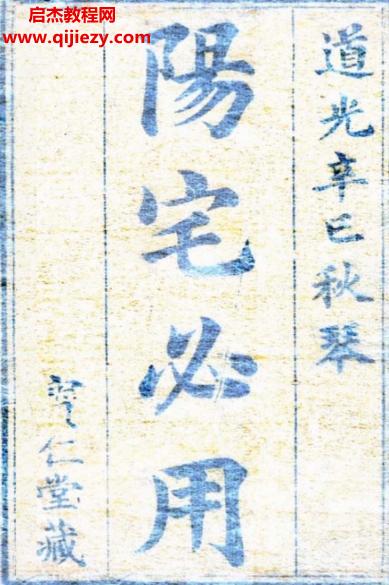 启杰教程网
www.qijiezy.com
道光辛巳秋琴
陽宅必用
仁堂藏